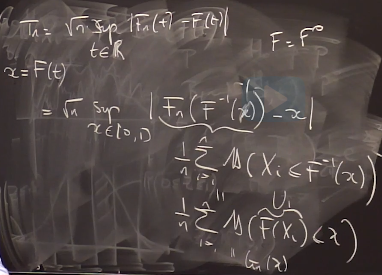 Tn = √n sup t∈ℝ |Fn(t) − F(t)|
F = F⁰
x = F(t)
= √n sup x∈[0,1) |Fn(F⁻¹(x)) − x|
1/n Σ i=1 n 𝟙(Xi ≤ F⁻¹(x))
Ui
1/n Σ i=1 n 𝟙(F(Xi) ≤ x)
Gn(x)